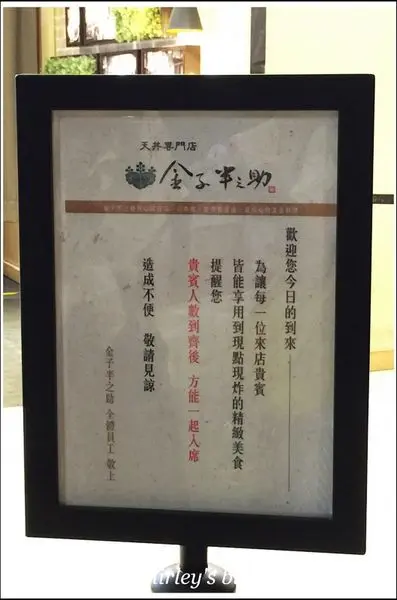 天丼專門店
金子半之助
歡迎您今日的到來
為讓每一位來店貴賓
皆能享用到現點現炸的精緻美食
提醒您
貴賓人數到齊後 方能一起入席
造成不便 敬請見諒
金子半之助 全體員工 敬上